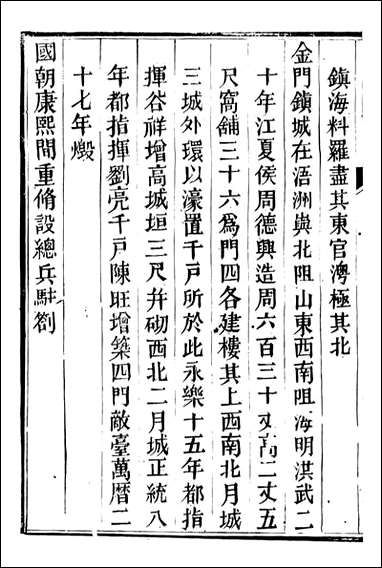 鎮海料羅盡其東官澳極其北
金門鎮城在浯洲與北阻山東西南阻海明洪武二
十年江夏侯周德興造周六百三十丈高二丈五
尺窩舖三十六爲門四各建樓其上西南北月城
三城外環以濠置千戶所於此永樂十五年都指
揮谷祥增高城垣三尺幷砌西北二月城正統八
年都指揮劉亮千戶陳旺增築四門敵臺萬曆二
十七年燬
國朝康熙間重脩設總兵駐劄